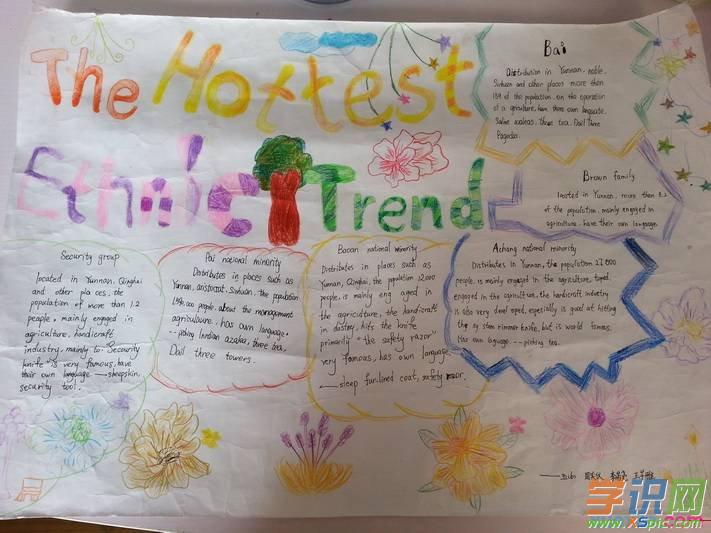 The Hottest
Ethnic Trend
Bai
Distribution in Yunnan, noble,
Sichuan and other places more then
189 of the population. on the operation
of a agriculture, have three own language.
three tea, Dail three
Pagoda.
Brown family
located in Yunnan, more than 8.2
of the population, mainly engaged in
agriculture, have their own language.
Security group
located in Yunnan, Qinghai
and other places, the
population of more than 1.2
people, mainly engaged in
agriculture, handicraft
industry, mainly to "Security
knife" is very famous, have
their own language —sheepskin,
security tool.
Pai national minority
Distributes in places such as
Yunnan, Sichuan, the population
people, about the management
agriculture, has own language.
--picking Indian azalea, three tea,
Dail three towers.
Baoan national minority
Distributes in places such as
Yunnan, Qinghai, the population 12,000
people, is mainly eng aged in
the agriculture, the handicraft
in dustry, hits the knife
primarily "the safety razor"
very famous, has own language.
—sleep fur-lined coat, safety razor.
Achang national minority
Distributes in Yunnan, the population 27,000
people, is mainly engaged in the agriculture,
engaged in the agriculture, the handicraft industry
is also very developed, especially is good at hitting
knife, but is world famous,
--picking tea.
学识网
www.XSpic.com